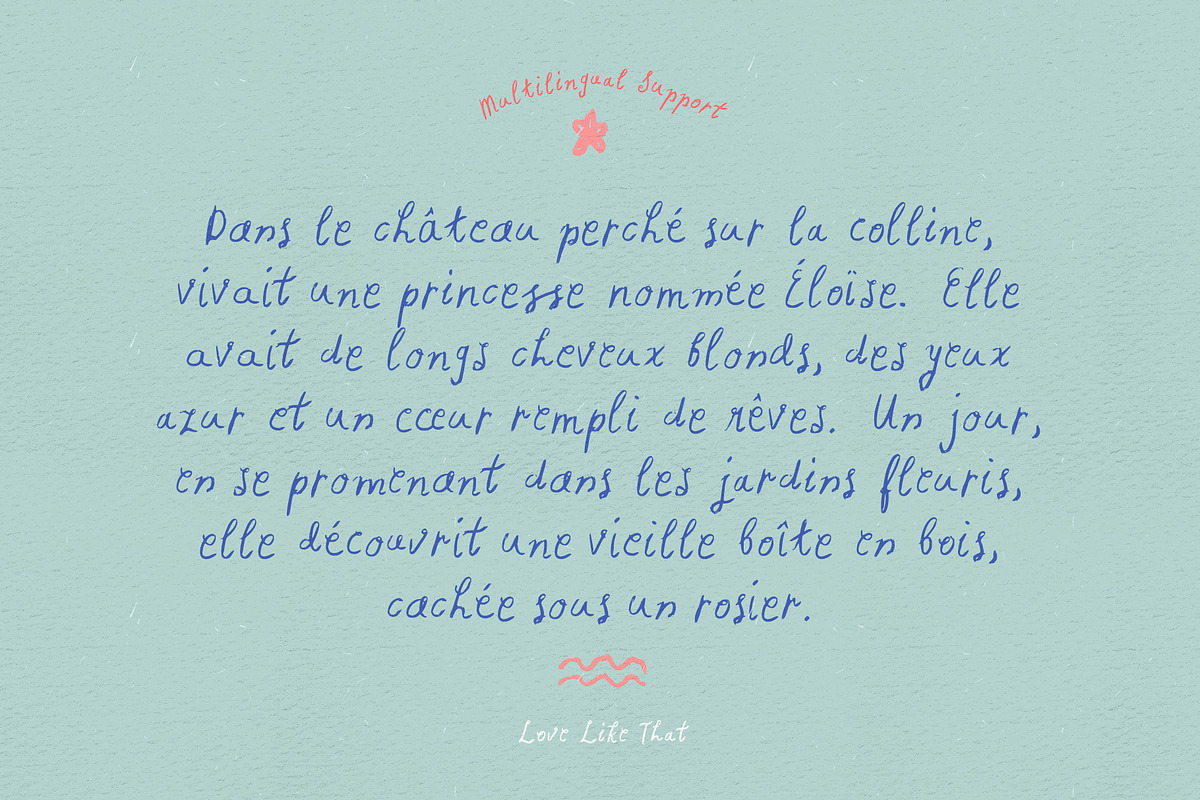 Multilingual Support
Dans le château perché sur la colline,
vivait une princesse nommée Éloïse. Elle
avait de longs cheveux blonds, des yeux
azur et un cœur rempli de rêves. Un jour,
en se promenant dans les jardins fleuris,
elle découvrit une vieille boîte en bois,
cachée sous un rosier.
Love Like That